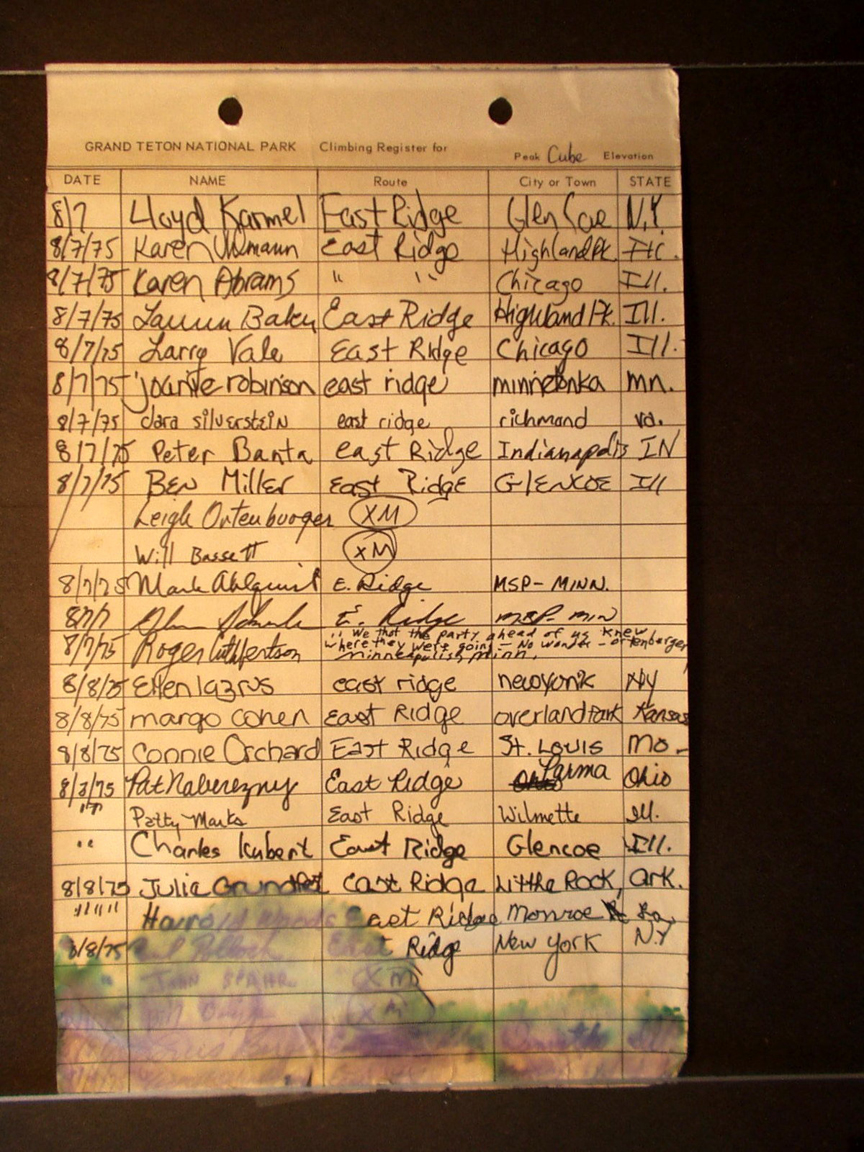 GRAND TETON NATIONAL PARK Climbing Register for Peak Cube Elevation
DATE NAME Route City or Town STATE
8/7 Lloyd Karmel East Ridge Glen Coe N.Y
8/7/75 Karen East Ridge Highland Pk.
8/7/75 Karen Abrams " " Chicago Ill.
8/7/75 East Ridge Highland Pk. Ill.
8/7/75 Larry Vale East Ridge Chicago Ill.
8/7/75 joanie robinson east ridge minnetonka mn.
8/7/75 clara silverstein east ridge richmond va.
8/7/75 Peter Banta east Ridge Indianapolis IN
8/7/75 Ben Miller East Ridge GLENCOE Ill
Leigh Ortenburger XM
Will Bassett XM
8/7/75 Mark Ahlquist E. Ridge MSP-MINN.
8/7/7 E. Ridge MSP-MIN
8/7/75 Roger " We that the party ahead of us knew
where they were going - No wonder - ortenberger
Minneapolis, Minn.
8/8/75 Ellen lazrus east ridge newyork NY
8/8/75 margo cohen East Ridge overland Park Kansas
8/8/75 Connie Orchard East Ridge St. Louis Mo.
8/8/75 Pat Naberezny East Ridge Parma Ohio
"" Patty Marks East Ridge Wilmette Ill.
" Charles Kubert East Ridge Glencoe Ill.
8/8/75 Julia East Ridge Little Rock, Ark.
"""" Harold Woods East Ridge Monroe La
8/8/75 Pollock East Ridge New York N.Y
" (XM)
(XM)